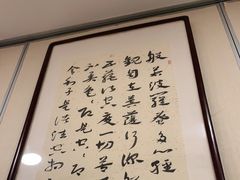 般若波羅蜜多心經
觀自在菩薩行深
五蘊皆空度一切苦
異色
舍利子是諸法空相